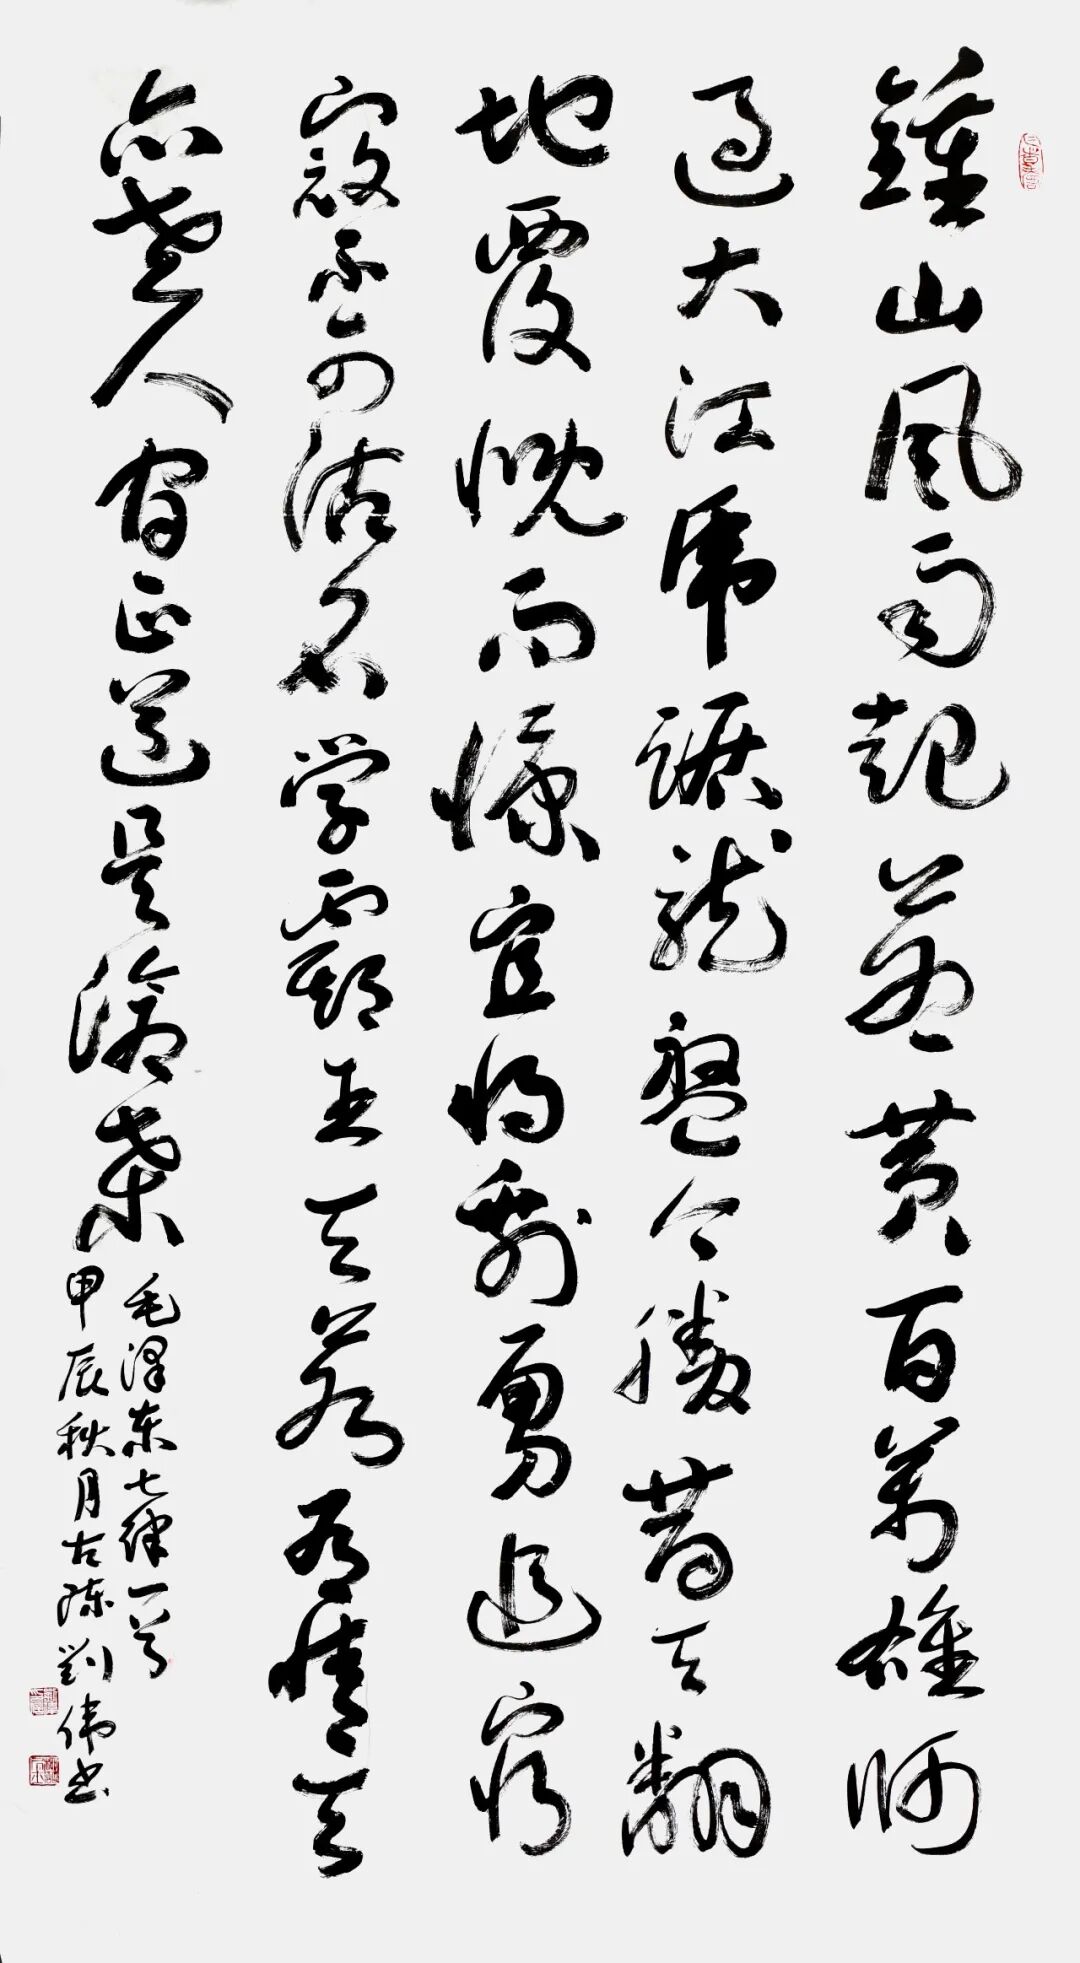 鍾山風雨起蒼黄百萬雄师
过大江虎踞龙盤今勝昔天翻
地覆慨而慷宜将剩勇追窮
寇不可沽名学霸王天若有情天
亦老人间正道是滄桑
毛泽东七律一首
甲辰秋月古陈劉伟书